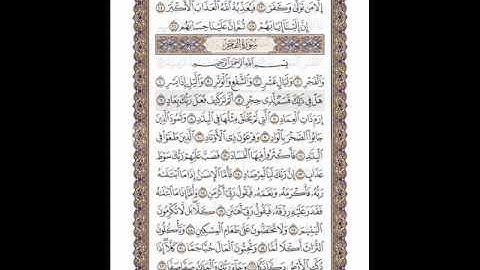 إِلَّا مَن تَوَلَّىٰ وَكَفَرَ ٢٣ فَيُعَذِّبُهُ ٱللَّهُ ٱلْعَذَابَ ٱلْأَكْبَرَ ٢٤
إِنَّ إِلَيْنَآ إِيَابَهُمْ ٢٥ ثُمَّ إِنَّ عَلَيْنَا حِسَابَهُم ٢٦
سُورَةُ الفَجْرِ
بِسْمِ ٱللَّهِ ٱلرَّحْمَٰنِ ٱلرَّحِيمِ
وَٱلْفَجْرِ ١ وَلَيَالٍ عَشْرٍ ٢ وَٱلشَّفْعِ وَٱلْوَتْرِ ٣ وَٱلَّيْلِ إِذَا يَسْرِ ٤
هَلْ فِي ذَٰلِكَ قَسَمٌ لِّذِي حِجْرٍ ٥ أَلَمْ تَرَ كَيْفَ فَعَلَ رَبُّكَ بِعَادٍ ٦
إِرَمَ ذَاتِ ٱلْعِمَادِ ٧ ٱلَّتِي لَمْ يُخْلَقْ مِثْلُهَا فِي ٱلْبِلَٰدِ ٨ وَثَمُودَ ٱلَّذِينَ
جَابُوا۟ ٱلصَّخْرَ بِٱلْوَادِ ٩ وَفِرْعَوْنَ ذِي ٱلْأَوْتَادِ ١٠ ٱلَّذِينَ طَغَوْا۟ فِي
ٱلْبِلَٰدِ ١١ فَأَكْثَرُوا۟ فِيهَا ٱلْفَسَادَ ١٢ فَصَبَّ عَلَيْهِمْ رَبُّكَ سَوْطَ
عَذَابٍ ١٣ إِنَّ رَبَّكَ لَبِٱلْمِرْصَادِ ١٤ فَأَمَّا ٱلْإِنسَٰنُ إِذَا مَا ٱبْتَلَىٰهُ
رَبُّهُۥ فَأَكْرَمَهُۥ وَنَعَّمَهُۥ فَيَقُولُ رَبِّيٓ أَكْرَمَنِ ١٥ وَأَمَّآ إِذَا مَا ٱبْتَلَىٰهُ
فَقَدَرَ عَلَيْهِ رِزْقَهُۥ فَيَقُولُ رَبِّيٓ أَهَٰنَنِ ١٦ كَلَّا بَل لَّا تُكْرِمُونَ
ٱلْيَتِيمَ ١٧ وَلَا تَحَٰٓضُّونَ عَلَىٰ طَعَامِ ٱلْمِسْكِينِ ١٨ وَتَأْكُلُونَ
ٱلتُّرَاثَ أَكْلًا لَّمًّا ١٩ وَتُحِبُّونَ ٱلْمَالَ حُبًّا جَمًّا ٢٠ كَلَّآ إِذَا
دُكَّتِ ٱلْأَرْضُ دَكًّا دَكًّا ٢١ وَجَآءَ رَبُّكَ وَٱلْمَلَكُ صَفًّا صَفًّا ٢٢